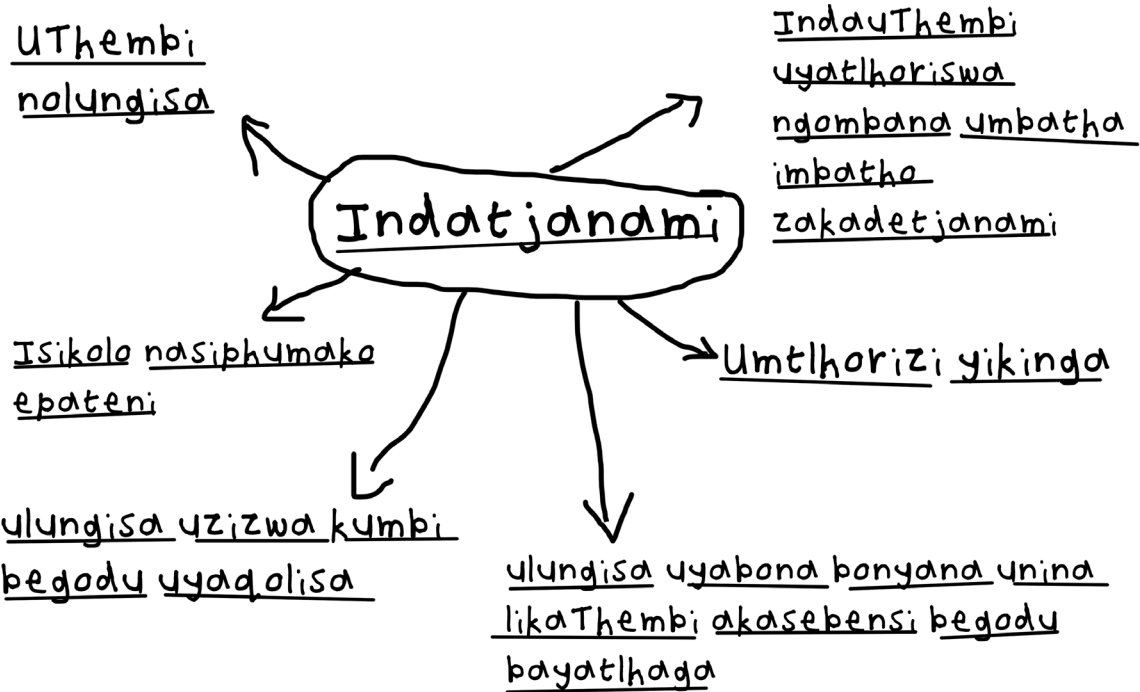 UThembi
nolungisa
IndauThembi
uyatlhoriswa
ngombana umbatha
imbatho
zakadetjanami
Indatjanami
Isikolo nasiphumako
epateni
Umtlhorizi yikinga
ulungisa uzizwa kumbi
begodu uyaqolisa
ulungisa uyabona bonyana unina
likaThembi akasebensi begodu
bayatlhaga